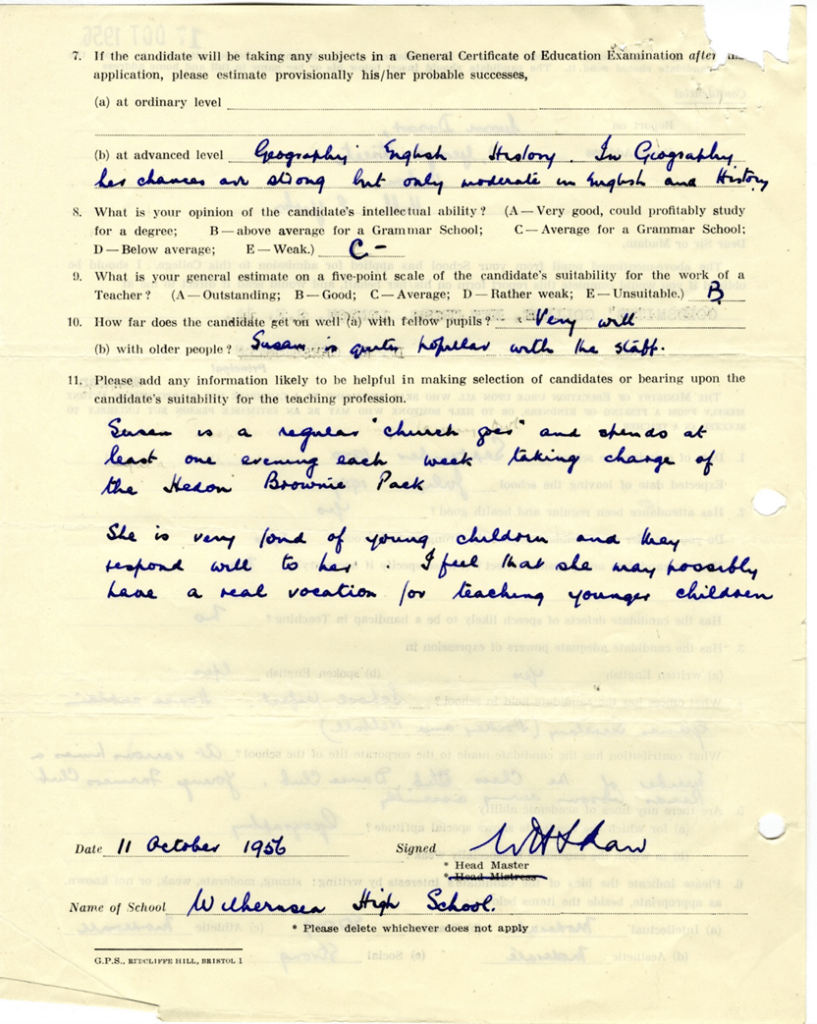 7. If the candidate will be taking any subjects in a General Certificate of Education Examination after
application, please estimate provisionally his/her probable successes,
(a) at ordinary level
(b) at advanced level Geography English History. In Geography
her chances are strong but only moderate in English and History
8. What is your opinion of the candidate's intellectual ability? (A—Very good, could profitably study
for a degree; B—above average for a Grammar School; C—Average for a Grammar School;
D—Below average; E—Weak.) C-
9. What is your general estimate on a five-point scale of the candidate's suitability for the work of a
Teacher? (A—Outstanding; B—Good; C—Average; D—Rather weak; E—Unsuitable.) B
10. How far does the candidate get on well (a) with fellow pupils? Very well
(b) with older people? Susan is quite popular with the staff.
11. Please add any information likely to be helpful in making selection of candidates or bearing upon the
candidate's suitability for the teaching profession.
Susan is a regular "church goer" and spends at
least one evening each week taking charge of
the Hedon Brownie Pack
She is very fond of young children and they
respond well to her. I feel that she may possibly
have a real vocation for teaching younger children
Date 11 October 1956 Signed
* Head Master
* Head Mistress
Name of School Withernsea High School.
* Please delete whichever does not apply
G.P.S., REDCLIFFE HILL, BRISTOL 1